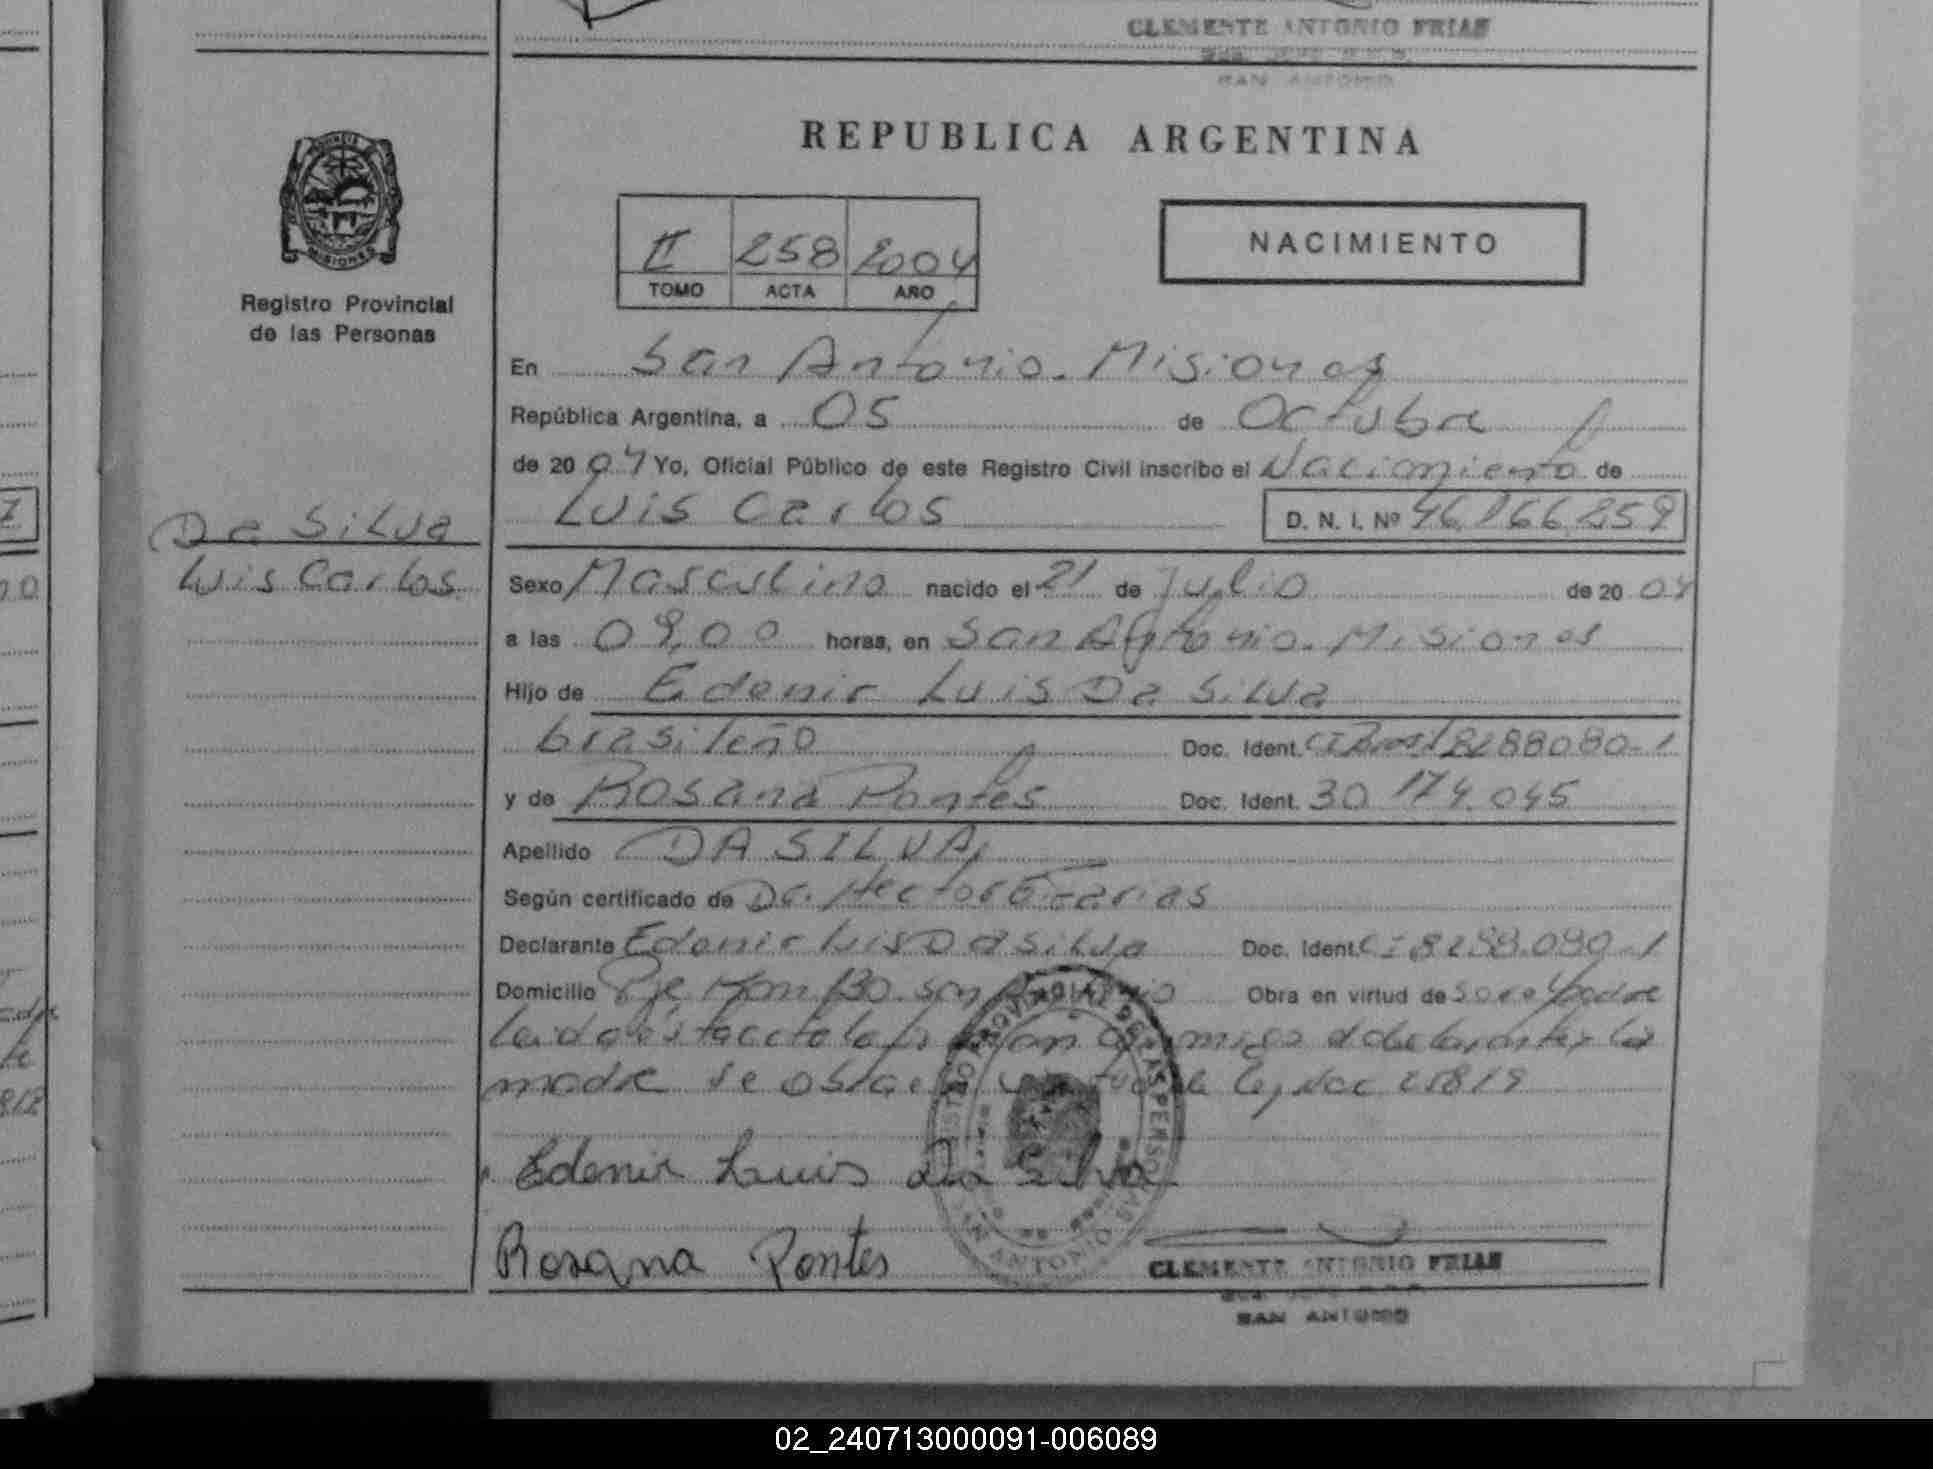 CLEMENTE ANTONIO FRIAS
SAN ANTONIO
REPUBLICA ARGENTINA
MISIONES
Registro Provincial
de las Personas
II 258 2004
TOMO ACTA AÑO
NACIMIENTO
En San Antonio. Misiones
República Argentina, a 05 de Octubre
de 20 04 Yo, Oficial Público de este Registro Civil inscribo el Nacimiento de
Luis Carlos D. N. I. Nº 46.166.259
Da Silva
Luis Carlos.
Sexo Masculino nacido el 21 de Julio de 20 04
a las 09,00 horas, en San Antonio. Misiones
Hijo de Edenir Luis Da Silva
brasileño Doc. Ident. 8288080-1
y de Rosana Pontes Doc. Ident. 30.174.045
Apellido DA SILVA
Según certificado de Dr. Hector Farias
Declarante Edenir Luis Da Silva Doc. Ident. CI 8288.080-1
Domicilio Pje Km 130. San Antonio Obra en virtud de
madre se
Edenir Luis Da Silva
Rosana Pontes
CLEMENTE ANTONIO FRIAS
SAN ANTONIO
02_240713000091-006089